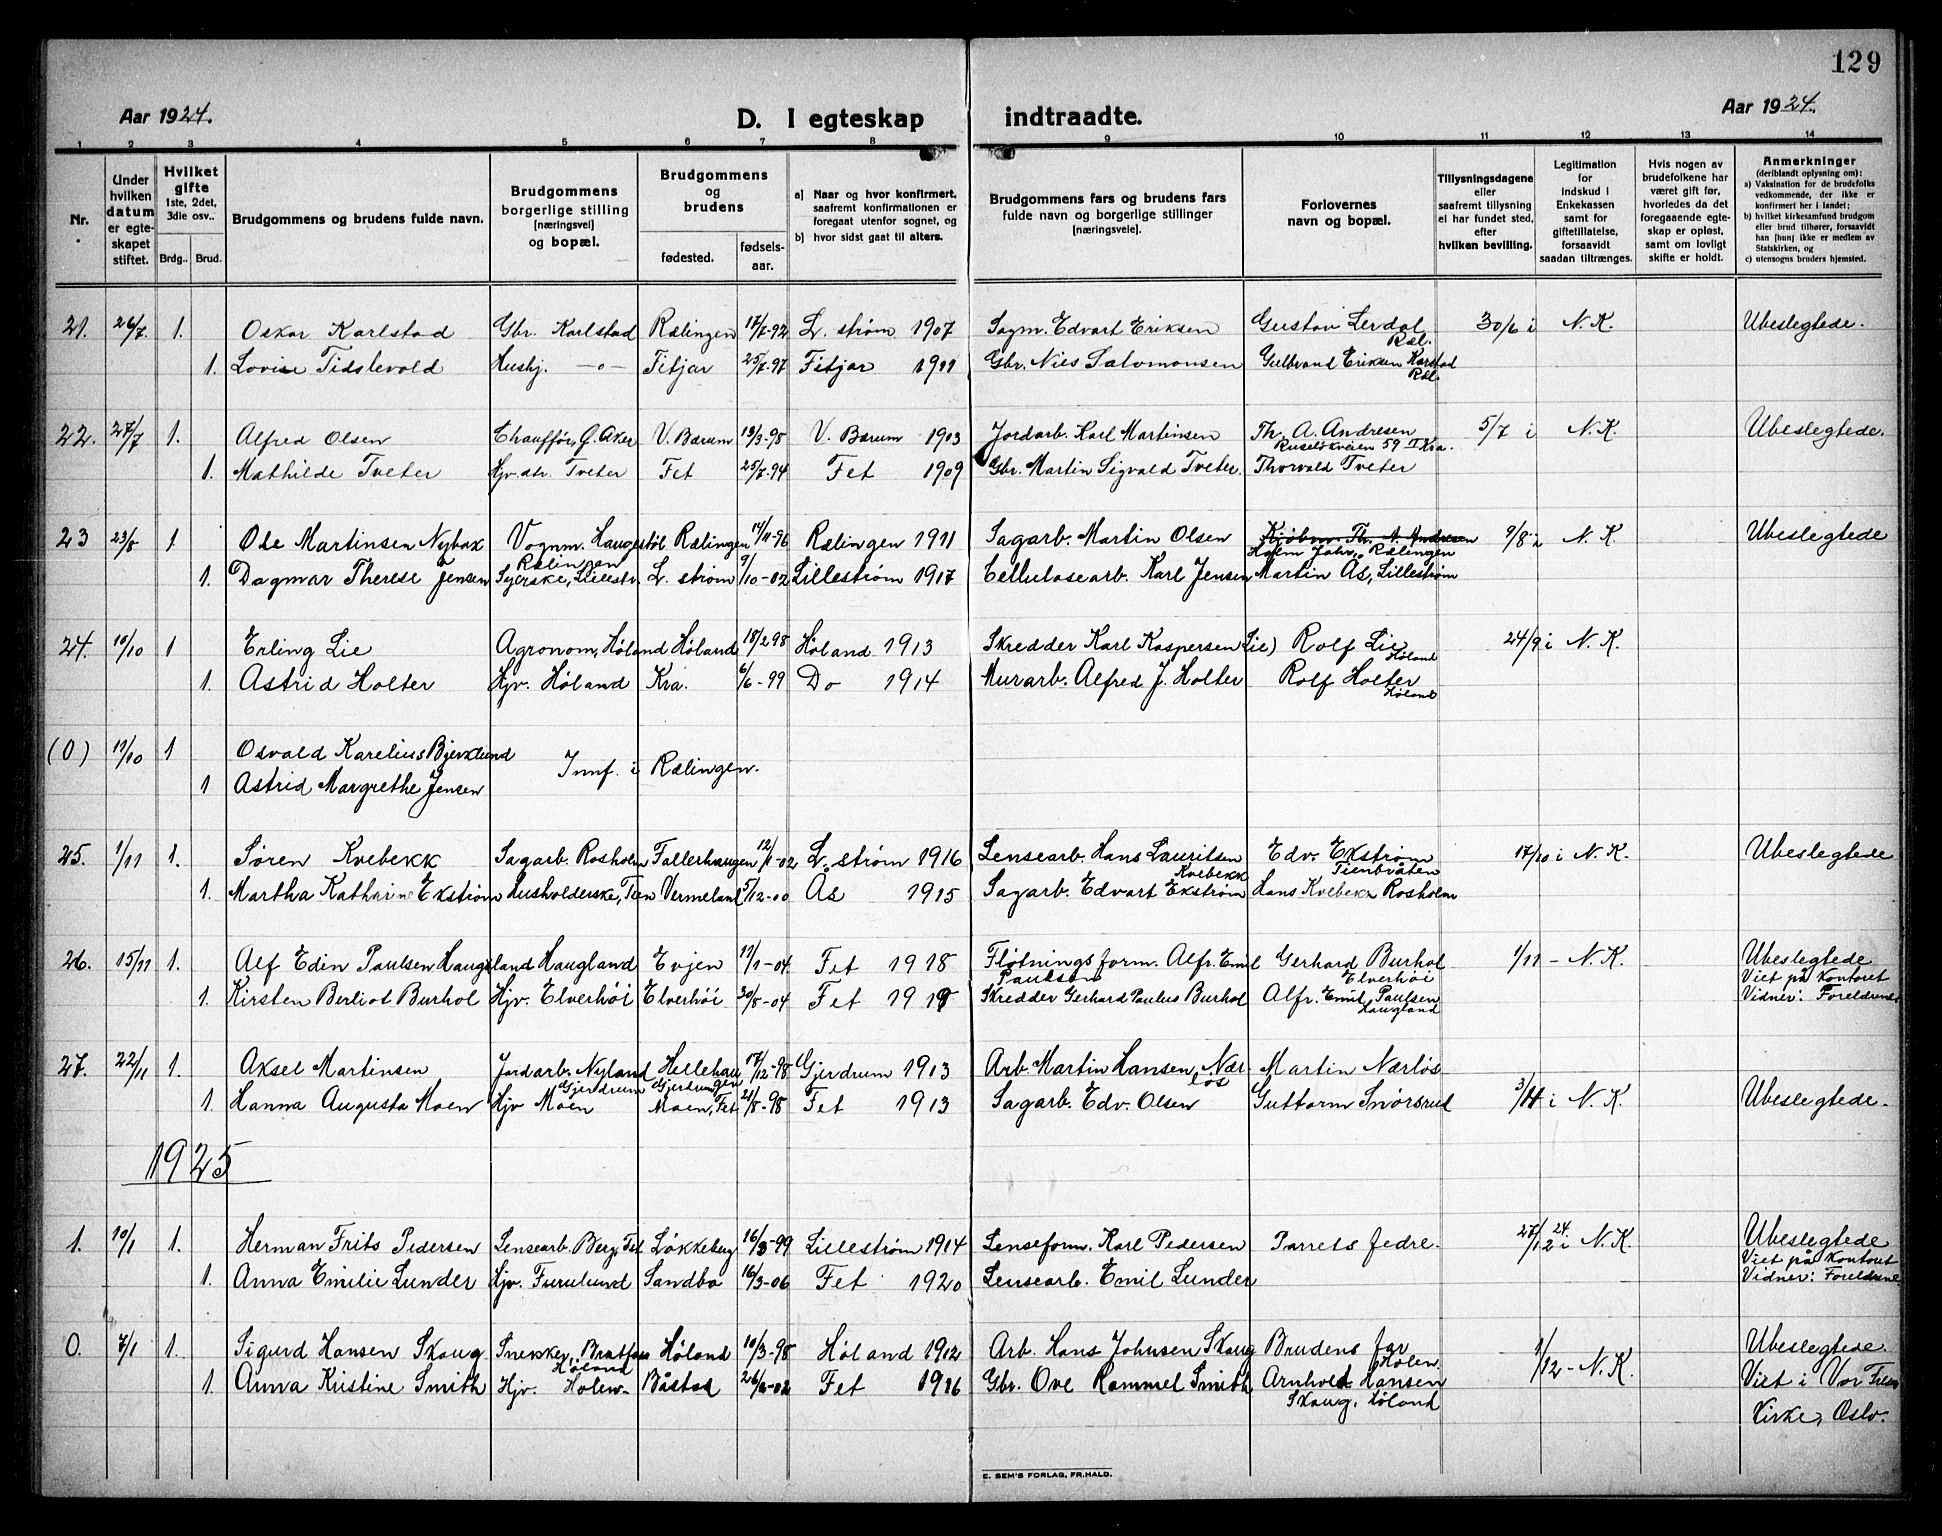 129
Aar 1924. D. I egteskap indtraadte. Aar 1924.
1 2 3 4 5 6 7 8 9 10 11 12 13 14
Nr.
Under hvilken datum er egteskapet stiftet.
Hvilket gifte 1ste, 2det, 3die osv..
Brdg.. Brud.
Brudgommens og brudens fulde navn.
Brudgommens borgerlige stilling [næringsvei] og bopæl.
Brudgommens og brudens
fødested. fødsels-aar.
a) Naar og hvor konfirmert, saafremt konfirmationen er foregaat utenfor sognet, og
b) hvor sidst gaat til alters.
Brudgommens fars og brudens fars fulde navn og borgerlige stillinger [næringsveie].
Forlovernes navn og bopæl.
Tillysningsdagene eller saafremt tillysning ei har fundet sted, efter hvilken bevilling.
Legitimation for indskud i Enkekassen samt for giftetillatelse, forsaavidt saadan tiltrænges.
Hvis nogen av brudefolkene har været gift før, hvorledes da det foregaaende egteskap er opløst, samt om lovligt skifte er holdt.
Anmerkninger (deriblandt oplysning om):
a) Vaksination for de brudefolks vedkommende, der ikke er konfirmert her i landet;
b) hvilket kirkesamfund brudgom eller brud tilhører, forsaavidt han [hun] ikke er medlem av Statskirken, og
c) utensogns bruders hjemsted.
21. 26/7. 1. Oskar Karlstad Gbr. Karlstad Rælingen 92 L. strøm 1907 Sagm. Edvart Eriksen Gustav Lerdal Ræl. 30/6 i N.K. Ubeslegtede.
1. Lovise Tidslevold Hushj. —o— Fitjar 25/7-97 Fitjar 1911 Gbr. Nils Salomonsen Gulbrand Eriksen Karstad Ræl.
22. 27/7 1. Alfred Olsen Chauffør, Ø. Aker V. Bærum 13/3-98 V. Bærum 1913 Jordarb. Karl Martinsen Th. A. Andresen Ruseløkveien 59 II Kra. 5/7 i N.K. Ubeslegtede.
1. Mathilde Tveter Hjv. dtr. Tveter Fet 25/7-94 Fet 1909 Gbr. Martin Sigvald Tveter. Thorvald Tveter
23 23/8 1. Ole Martinsen Nybak Vognm. Haugestøl Rælingen Rælingen 14/11-96 Rælingen 1911 Sagarb. Martin Olsen Kjøbm. Th. A. Andresen Holm Jahr, Rælingen 9/8 2 N.K. Ubeslegtede
1. Dagmar Therese Jensen Syerske, Lillestr. L. strøm 9/10-02 Lillestrøm 1917 Cellulosearb. Karl Jensen Martin Ås, Lillestrøm
24. 10/10 1 Erling Lie Agronom, Høland Høland 18/2 98 Høland 1913 Skredder Karl Kaspersen (Lie) Rolf Lie Høland 24/9 i N.K.
1. Astrid Holter Hjv. Høland Kra. 6/6-99 Do 1914 Murarb. Alfred J. Holter Rolf Holter Høland
(0) 11/10 1 Osvald Karelius Bjerklund
Innf. i Rælingen.
1 Astrid Margrethe Jensen
25. 1/11 1. Søren Kvebekk Sagarb. Rosholm Tollerhaugen 12/1-02 L. strøm 1916 Lensearb. Hans Lauritsen Kvebekk Edv. Ekstrøm Tienbråten 17/10 i N.K. Ubeslegtede
1. Martha Kathrine Ekstrøm Husholderske, Tien Vermeland 5/12-00 Ås 1915 Sagarb. Edvart Ekstrøm Hans Kvebekk Rosholm
26. 15/11 1. Alf Edin Paulsen Haugland Haugland Evjen 17/1-04. Fet 1918 Fløtningsform. Alfr. Emil Paulsen Gerhard Burhol Elverhöi 1/11 - N.K. Ubeslegtede
Viet på kontoret
1. Kirsten Berliot Burhol Hjv. Elverhöi Elverhöi 30/8-04 Fet 1919 Skredder Gerhard Paulus Burhol Alfr. Emil Paulsen Haugland Vidner: Foreldrene
27. 22/11 1. Aksel Martinsen Jordarb. Nyland Gjerdrum Hellehaugen Gjerdrum 17/12-98 Gjerdrum 1913 Arb. Martin Hansen, Nærløs Martin Nærløs
1. Hanna Augusta Moen Hjv Moen Moen, Fet 21/8-98 Fet 1913 Sagarb. Edv. Olsen Guttorm Snørsrud 3/11 i N.K. Ubeslegtede.
1925
1. 10/1 1. Herman Frits Pedersen Lensearb. Berg, Løkkeberg 16/3-99 Lillestrøm 1914 Lenseform. Karl Pedersen Parrets fedre. 27/12 24. i N.K. Ubeslegtede
Viet på kontoret
1. Anna Emilie Lunder Hjv. Furulund Sandbo 16/3-06 Fet 1920 Lensearb. Emil Lunder Vidner: Foreldrene
0. 7/1 1. Sigurd Hansen Skaug Snekker, Høland Høland 10/3-98 Høland 1912 Arb. Hans Johnsen Skaug Brudens far Holen. 1/12 - N.K. Ubeslegtede.
1. Anna Kristine Smith Hjv. Holen Båstad 02 Fet 1916 Gbr. Ove Rammel Smith Arnhold Hansen Skaug, Høland Viet i Vor Frelsers
Kirke, Oslo.
E. SEM'S FORLAG, FR.HALD.